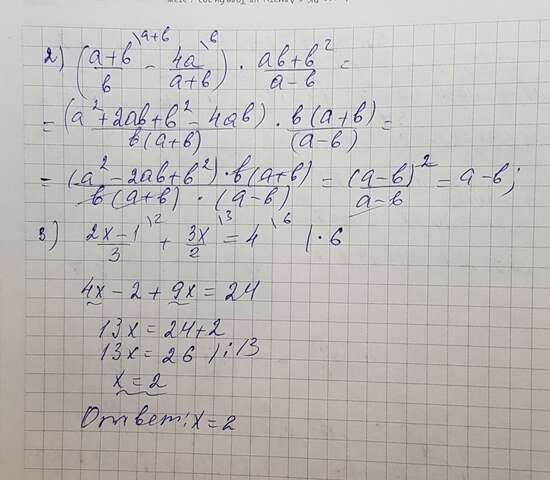 2) ((a+b)/b \a+b - 4a/(a+b) \b) · (ab+b²)/(a-b) =
= (a²+2ab+b²-4ab)/(b(a+b)) · b(a+b)/(a-b) =
= (a²-2ab+b²)·b(a+b)/(b(a+b)·(a-b)) = (a-b)²/(a-b) = a-b;
3) (2x-1)/3 \2 + 3x/2 \3 = 4 \6 |·6
4x-2+9x=24
13x=24+2
13x=26 /:13
x=2
Ответ: x=2